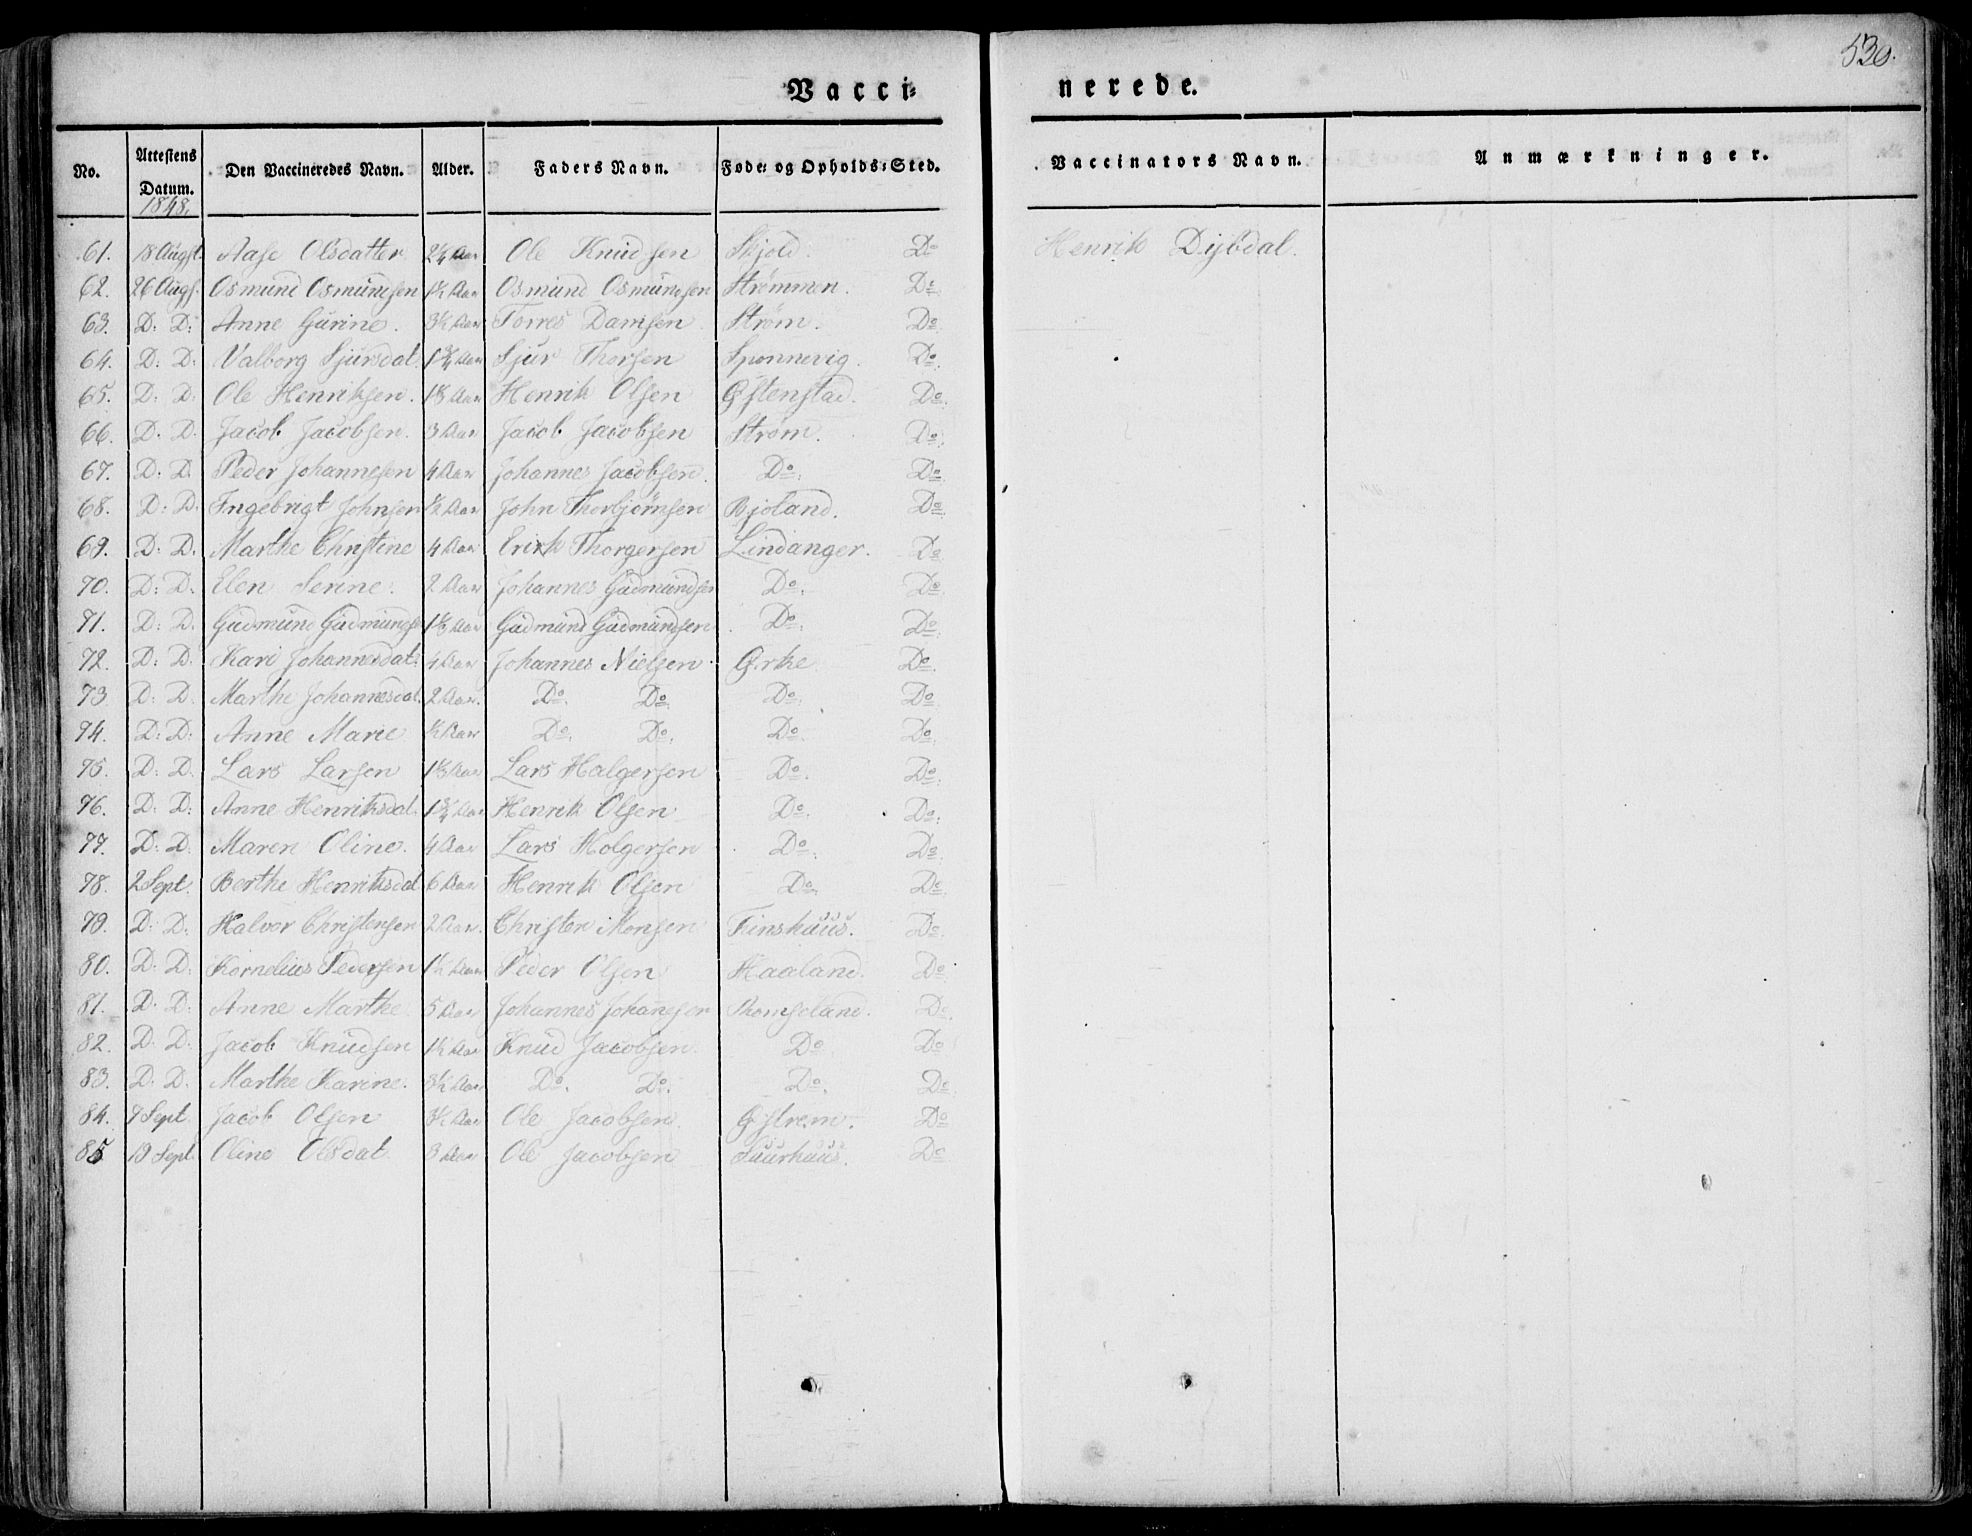 530.
Vacci-
nerede.
No. Attestens Datum. Den Vaccineredes Navn. Alder. Faders Navn. Føde- og Opholds-Sted. Vaccinators Navn. Anmærkninger.
1848,
61. 18 Augst. Aase Olsdatter 2¼ Aar Ole Knudsen Skjold. Do Henrik Dybdal.
62. 26 Augs. Osmund Osmundsen 1½ Aar Osmund Osmundsen Strømmen. Do
63. D: D: Anne Gurine. 3½ Aar Torres Danisen Strøm. Do
64. D: D: Valborg Sjursdat. 1¾ Aar Sjur Thorsen Spønnevig. Do
65. D: D: Ole Henriksen. Aar Henrik Olsen Østenstad. Do
66. D: D. Jacob Jacobsen. 3 Aar Jacob Jacobsen Strøm. Do
67. D: D. Peder Johannesen 4 Aar Johannes Jacobsen. Do Do
68. D: D. Ingebrigt Johnsen ½ Aar John Thorbjørnsen Bjoland. Do
69. D: D. Marthe Christine 4 Aar Erick Thorgersen Lindanger. Do
70. D: D. Elen Serine. 2 Aar Johannes Gudmundsen Do. Do
71. D: D. Gudmund Gudmunds Aar Gudmund Gudmundsen Do. Do
72. D: D. Kari Johannesdat. 4 Aar Johannes Nielsen Ørke Do
73 D: D. Marthe Johannesdat. 2 Aar. Do. Do. Do. Do
74. D: D: Anne Marie ½ Aar Do. Do. Do. Do
75. D: D. Lars Larsen Aar Lars Halgersen Do. Do
76. D: D: Anne Henriksdat. 1¾ Aar Henrik Olsen Do. Do.
77. D: D. Maren Oline. 4 Aar Lars Holgersen Do. Do
78. 2 Sept. Berthe Henriksdat 6 Aar Henrik Olsen Do. Do
79. D: D: Halvor Christensen 2 Aar. Christen Monsen Finshuus. Do.
80. D: D: Kornelius Pedersen 1½ Aar Peder Olsen Haaland. Do
81. D: D: Anne Marthe. 5 Aar Johannes Johannesen Thomseland. Do.
82. D: D: Jacob Knudsen 1½ Aar Knud Jacobsen. Do Do
83. D: D. Marthe Karine. 3½ Aar Do. Do. Do. Do
84. 9 Sept Jacob Olsen 3½ Aar Ole Jacobsen. Østrem. Do
85 19 Sept. Oline Olsdat 3 Aar Ole Jacobsen Suurhuus. Do